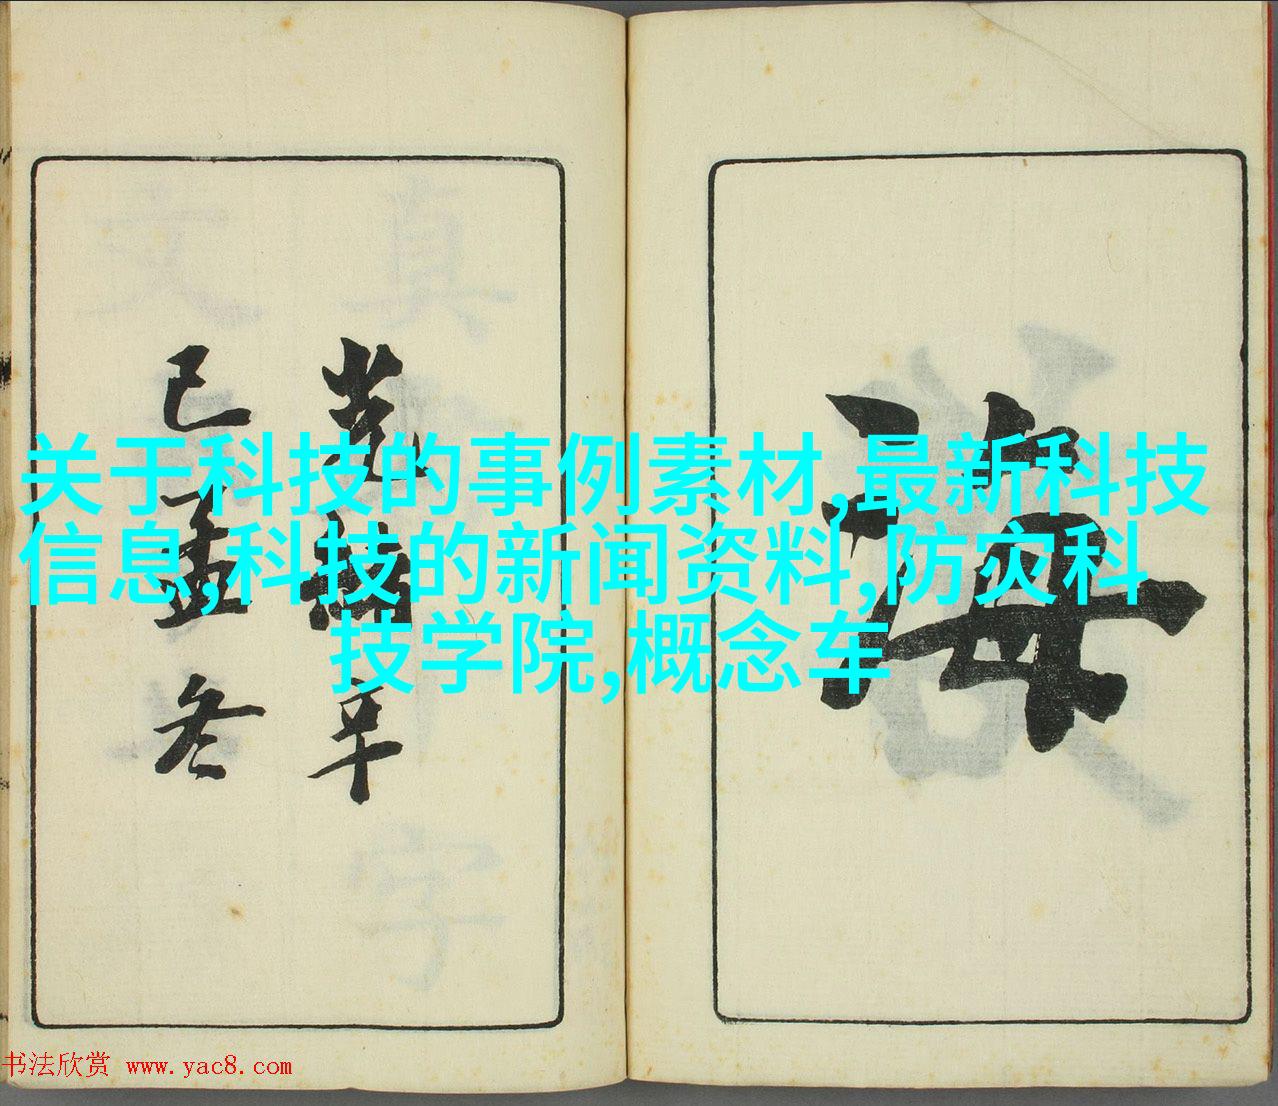 海
光緒年
己孟冬
关于科技的事例素材,最新科技
信息,科技的新闻资料,防灾科
技学院,概念车
书法欣赏 www.yac8.com